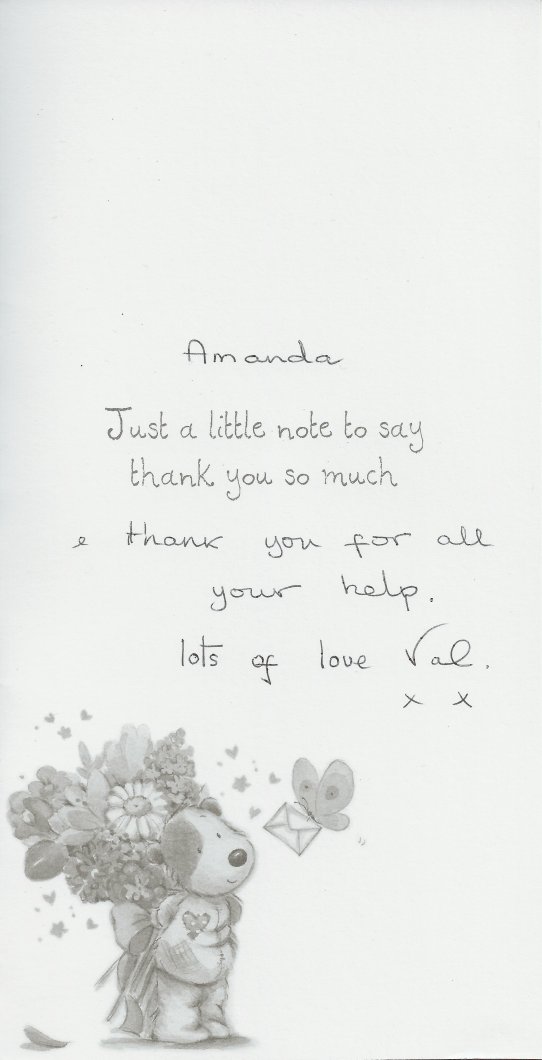 Amanda
Just a little note to say
thank you so much
e thank you for all
your help.
lots of love Val.
x x